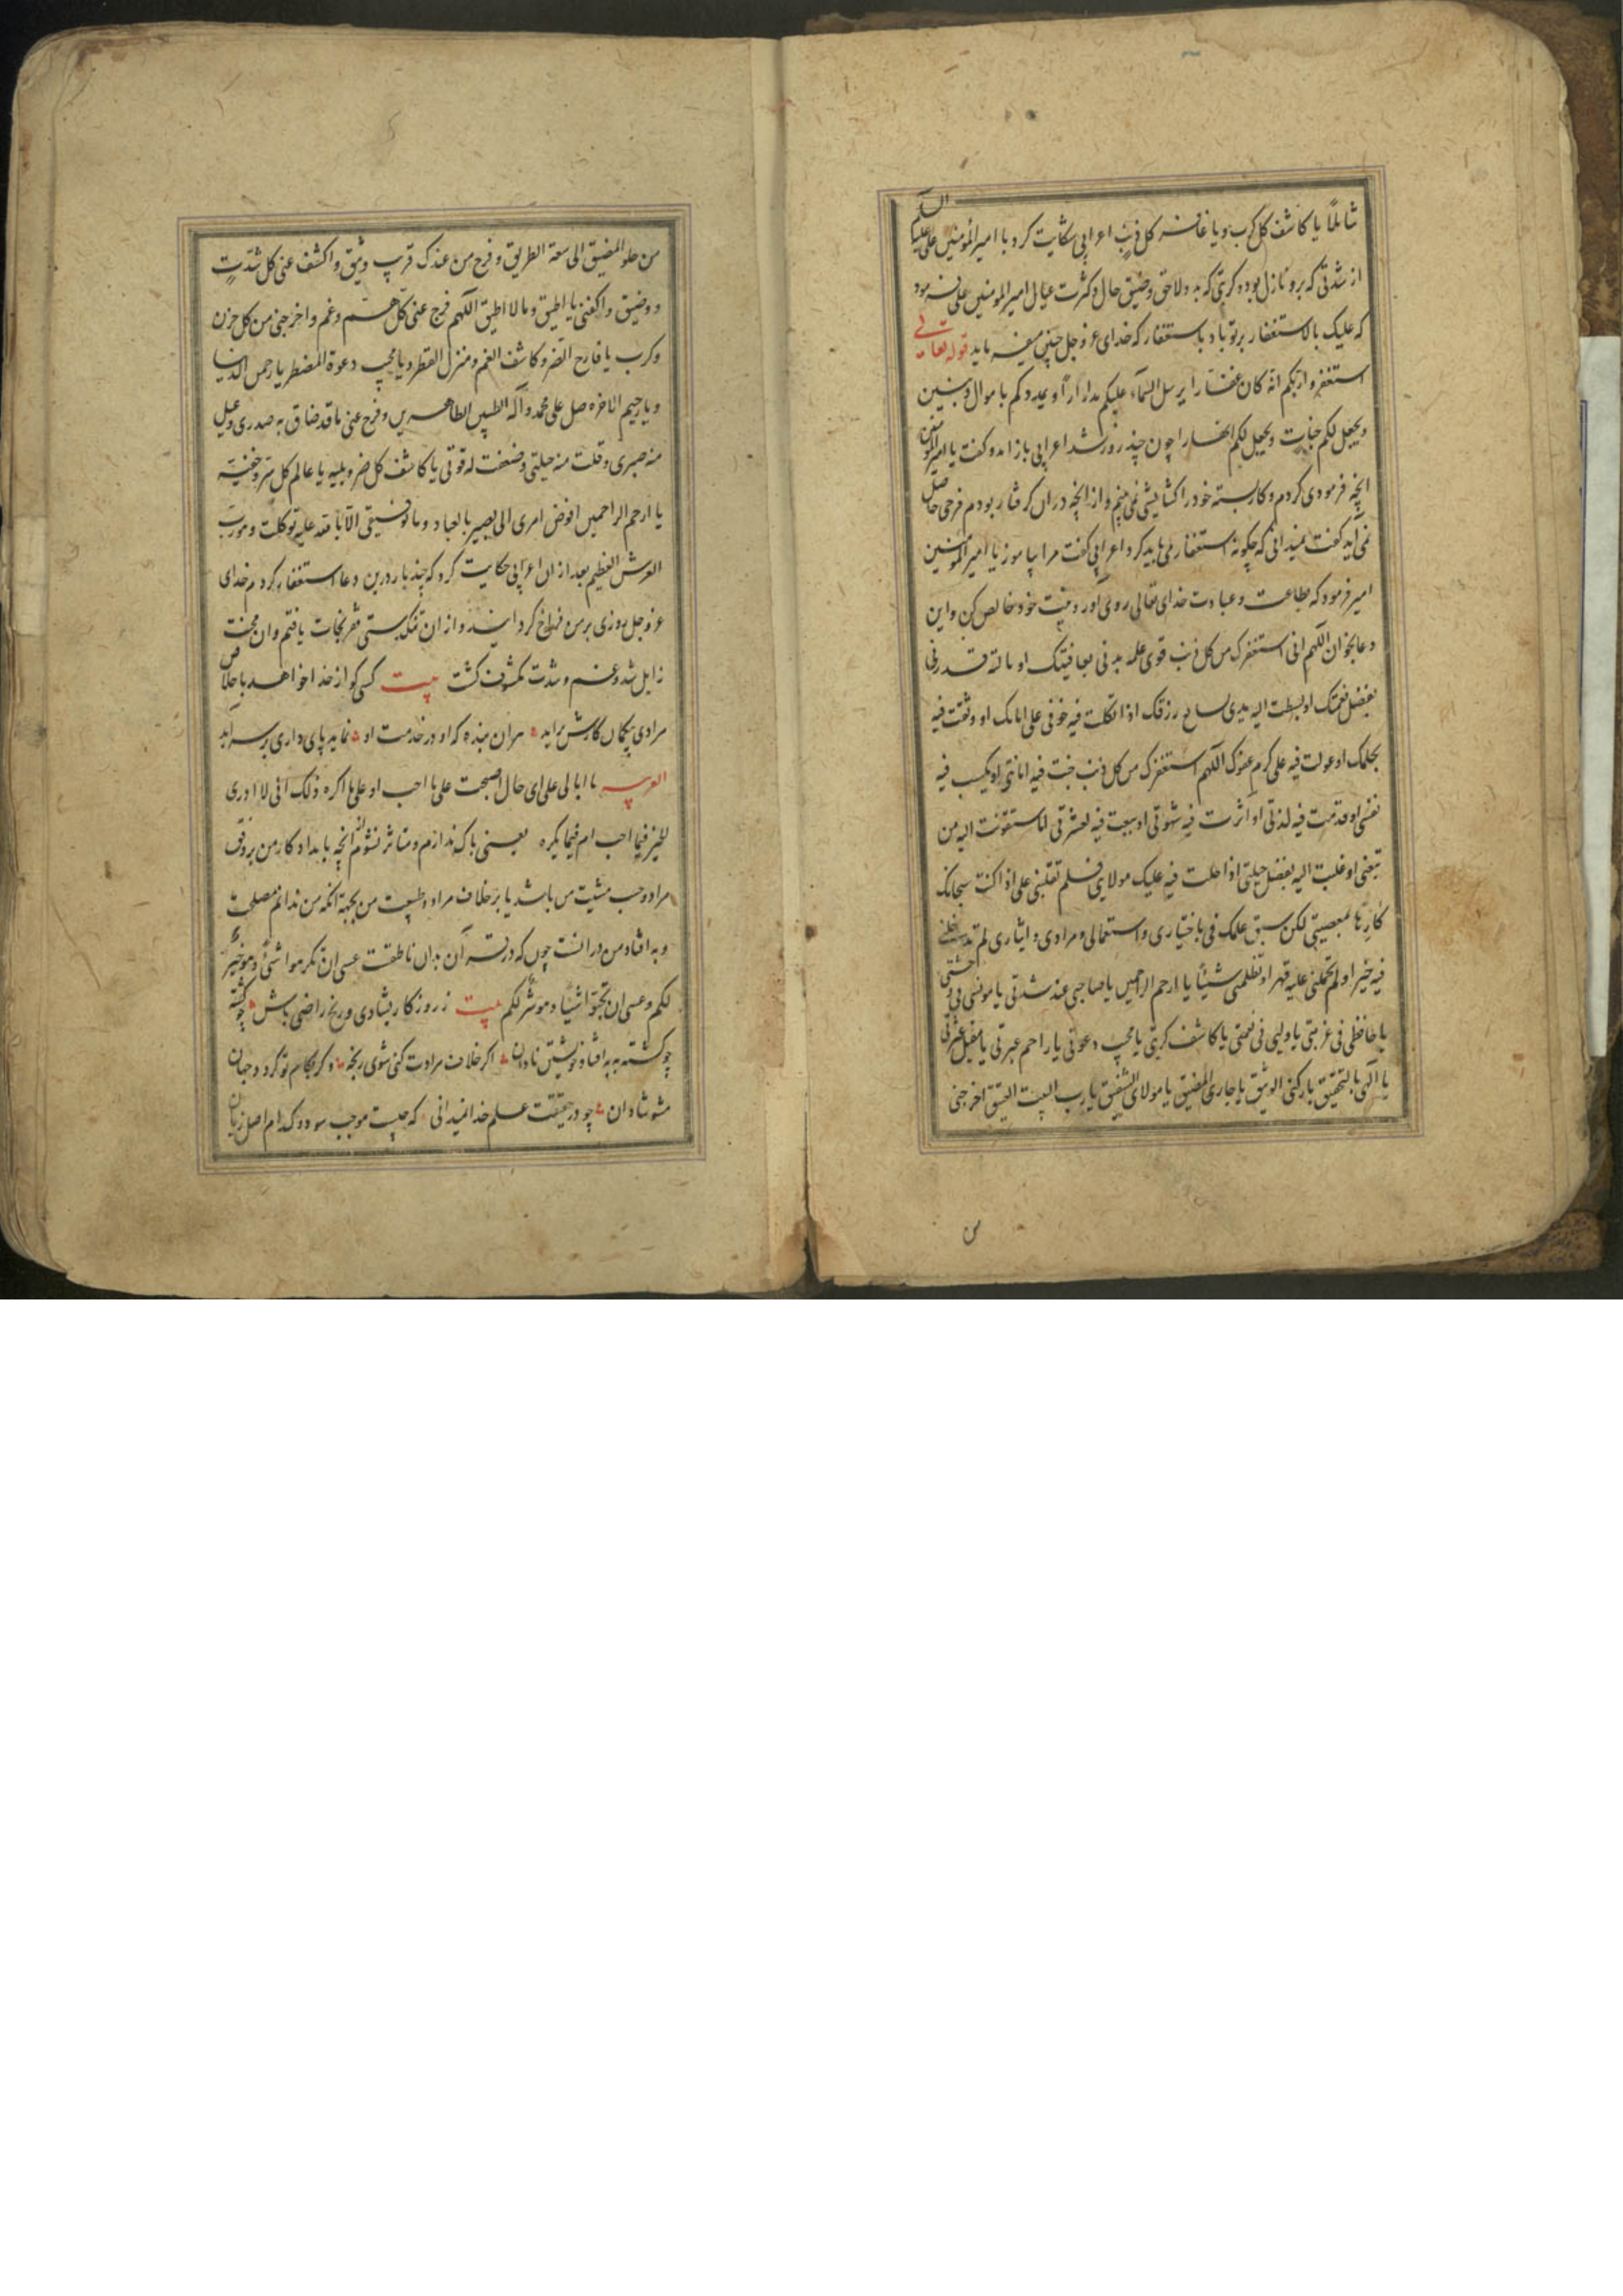 شاملاً یا کاشف کل کرب ویا غافر کل ذنب اعرابی شکایت کرد با امیرالمؤمنین علی علیه السلام
از شدتی که برو نازل بوده و کربتی که بدو لاحق و ضیق حال و کثرت عیال امیرالمومنین علی فرمود
که علیک بالاستغفار بر تو باد باستغفار که خدای عز و جل چنین میفرماید قوله تعالی
استغفروا ربکم انه کان غفارا یرسل السماء علیکم مدرارا و یمددکم باموال و بنین
ویجعل لکم جنات ویجعل لکم انهارا چون چند روز شد اعرابی باز امد و کفت یا امیرالمؤمنین
انچه فرمودی کردم و کار بسته خود را کشایشی نمی بینم و از انچه دران کرفتار بودم فرجی حاصل
نمی آید کفت نمیدانی که چکونه استغفار می باید کرد اعرابی کفت مرا بیاموز یا امیرالمؤمنین
امیر فرمود که بطاعت و عبادت خدای تعالی روی آور و نیت خود خالص کن و این
دعا بخوان اللهم انی استغفرک من کل ذنب قوی علیه بدنی بعافیتک او نالته قدرتی
بفضل نعمتک او بسطت الیه یدی بسابغ رزقک اذا اتکلت فیه خوفی علی اناتک او وثقت فیه
بحلمک او عولت فیه علی کرم عفوک اللهم استغفرک من کل ذنب خنت فیه امانتی او بخست فیه
نفسی او قدمت فیه لذتی او اثرت فیه شهوتی او سعیت فیه لغیرتی او استغویت الیه من
تبعنی او غلبت الیه بفضل حیلتی اذا حلت فیه علیک مولای فلم تغلبنی علی اذ اکنت سبحانک
کارها بمعصیتی لکن سبق علمک فی باختیاری واستعمالی و مرادی و ایثاری لم تدخلنی
فیه خیرا و لم تحملنی علیه قهرا و تظلمنی شیئا یا ارحم الراحمین یا صاحبی عند شدتی یا مونسی فی وحشتی
یا حافظی فی غربتی یا ولیی فی نعمتی یا کاشف کربتی یا مجیب دعوتی یا راحم عبرتی یا مقیل عثرتی
یا آلهی بالتحقیق یا رکنی الوثیق یا جاری اللصیق یا مولای الشفیق یا رب البیت العتیق اخرجنی
من حلق المضیق الی سعة الطریق و فرج من عندک قریب وثیق واکشف عنی کل شدت
و وضیق واکفنی ما اطیق وما لا اطیق اللهم فرج عنی کل هم وغم واخرجنی من کل حزن
وکرب یا فارج الضر و کاشف الغم ومنزل القطر ویا مجیب دعوة المضطر یا رحمن الدنیا
ویا رحیم الاخره صل علی محمد وآله الطیبین الطاهرین وفرج عنی ما قد ضاق به صدری وعیل
منه صبری وقلت منه حیلتی وضعفت له قوتی یا کاشف کل ضر وبلیه یا عالم کل سر وخفیة
یا ارحم الراحمین افوض امری الی بصیر بالعباد وما توفیقی الا بالله علیه توکلت وهو رب
العرش العظیم بعد از ان اعرابی حکایت کرد که چند بار درین دعا استغفار کردم خدای
عز وجل روزی بر من فراخ کردانید و از ان تنک دستی فقر نجات یافتم و ان محنت
زایل شد و غم و شدت مکشوف کشت بیت کسی کو از خدا خواهد باخلاص
مرادی بیکمان کارش براید هران بنده که او در خدمت او نماید پای داری بر سراید
العربیه ما ابالی علی ای حال اصبحت علی ما احب او علی ما اکره ذلک انی لا ادری
الخیر فیما احب ام فیما یکره یعنی باک ندارم و متاثر نشوم از انچه بامداد کار من بر وفق
مراد وحسب مشیت من باشد یا بر خلاف مراد و طبیعت من بجهة انکه من ندانم مصلحت
و به افتاد من در انست چون که در قرآن بدان ناطقست عسی ان تکرهوا شئی وهو خیر
لکم وعسی ان تحبوا شیئا وهو شر لکم بیت ز روزکار بشادی و رنج راضی باش چو کشته
چو کشته به به افتاد خویشتن نادان اکر خلاف مرادت کنی شوی رنجه و کر بکام تو کردد جهان
مشو شادان چو در حقیقت علم خدا نمیدانی که چیست موجب سود و کدام اصل زیان